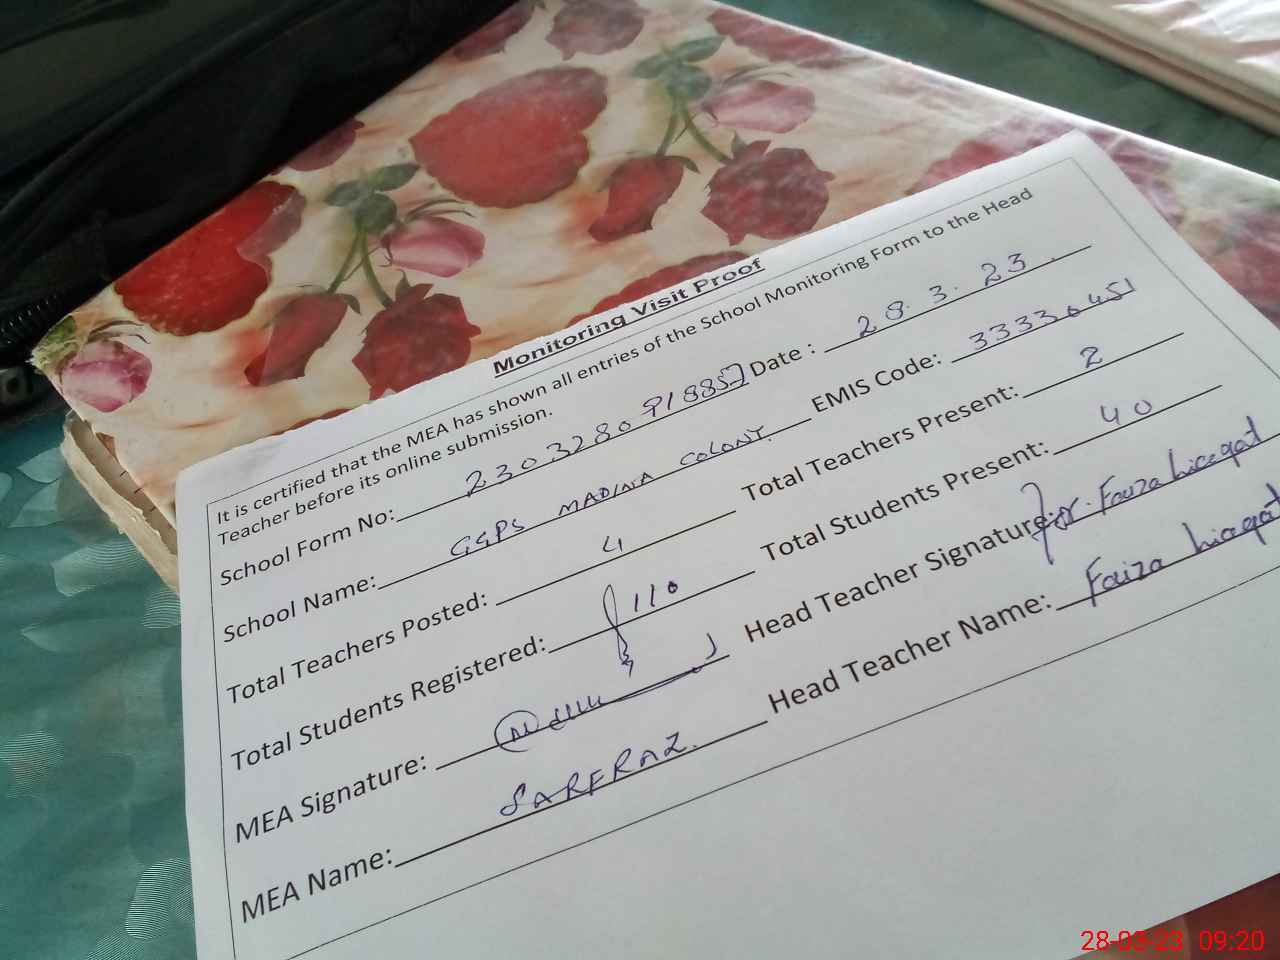 Monitoring Visit Proof
It is certified that the MEA has shown all entries of the School Monitoring Form to the Head
Teacher before its online submission.
School Form No: 2303280918857 Date : 28.3.23.
School Name: GGPS MADINA COLONY. EMIS Code: 33330451
Total Teachers Posted: 4 Total Teachers Present: 2
Total Students Registered: 110 Total Students Present: 40
MEA Signature: Head Teacher Signature: Fouza liaqat
MEA Name: SARFRAZ. Head Teacher Name: Fouiza liaqat
28-03-23 09:20